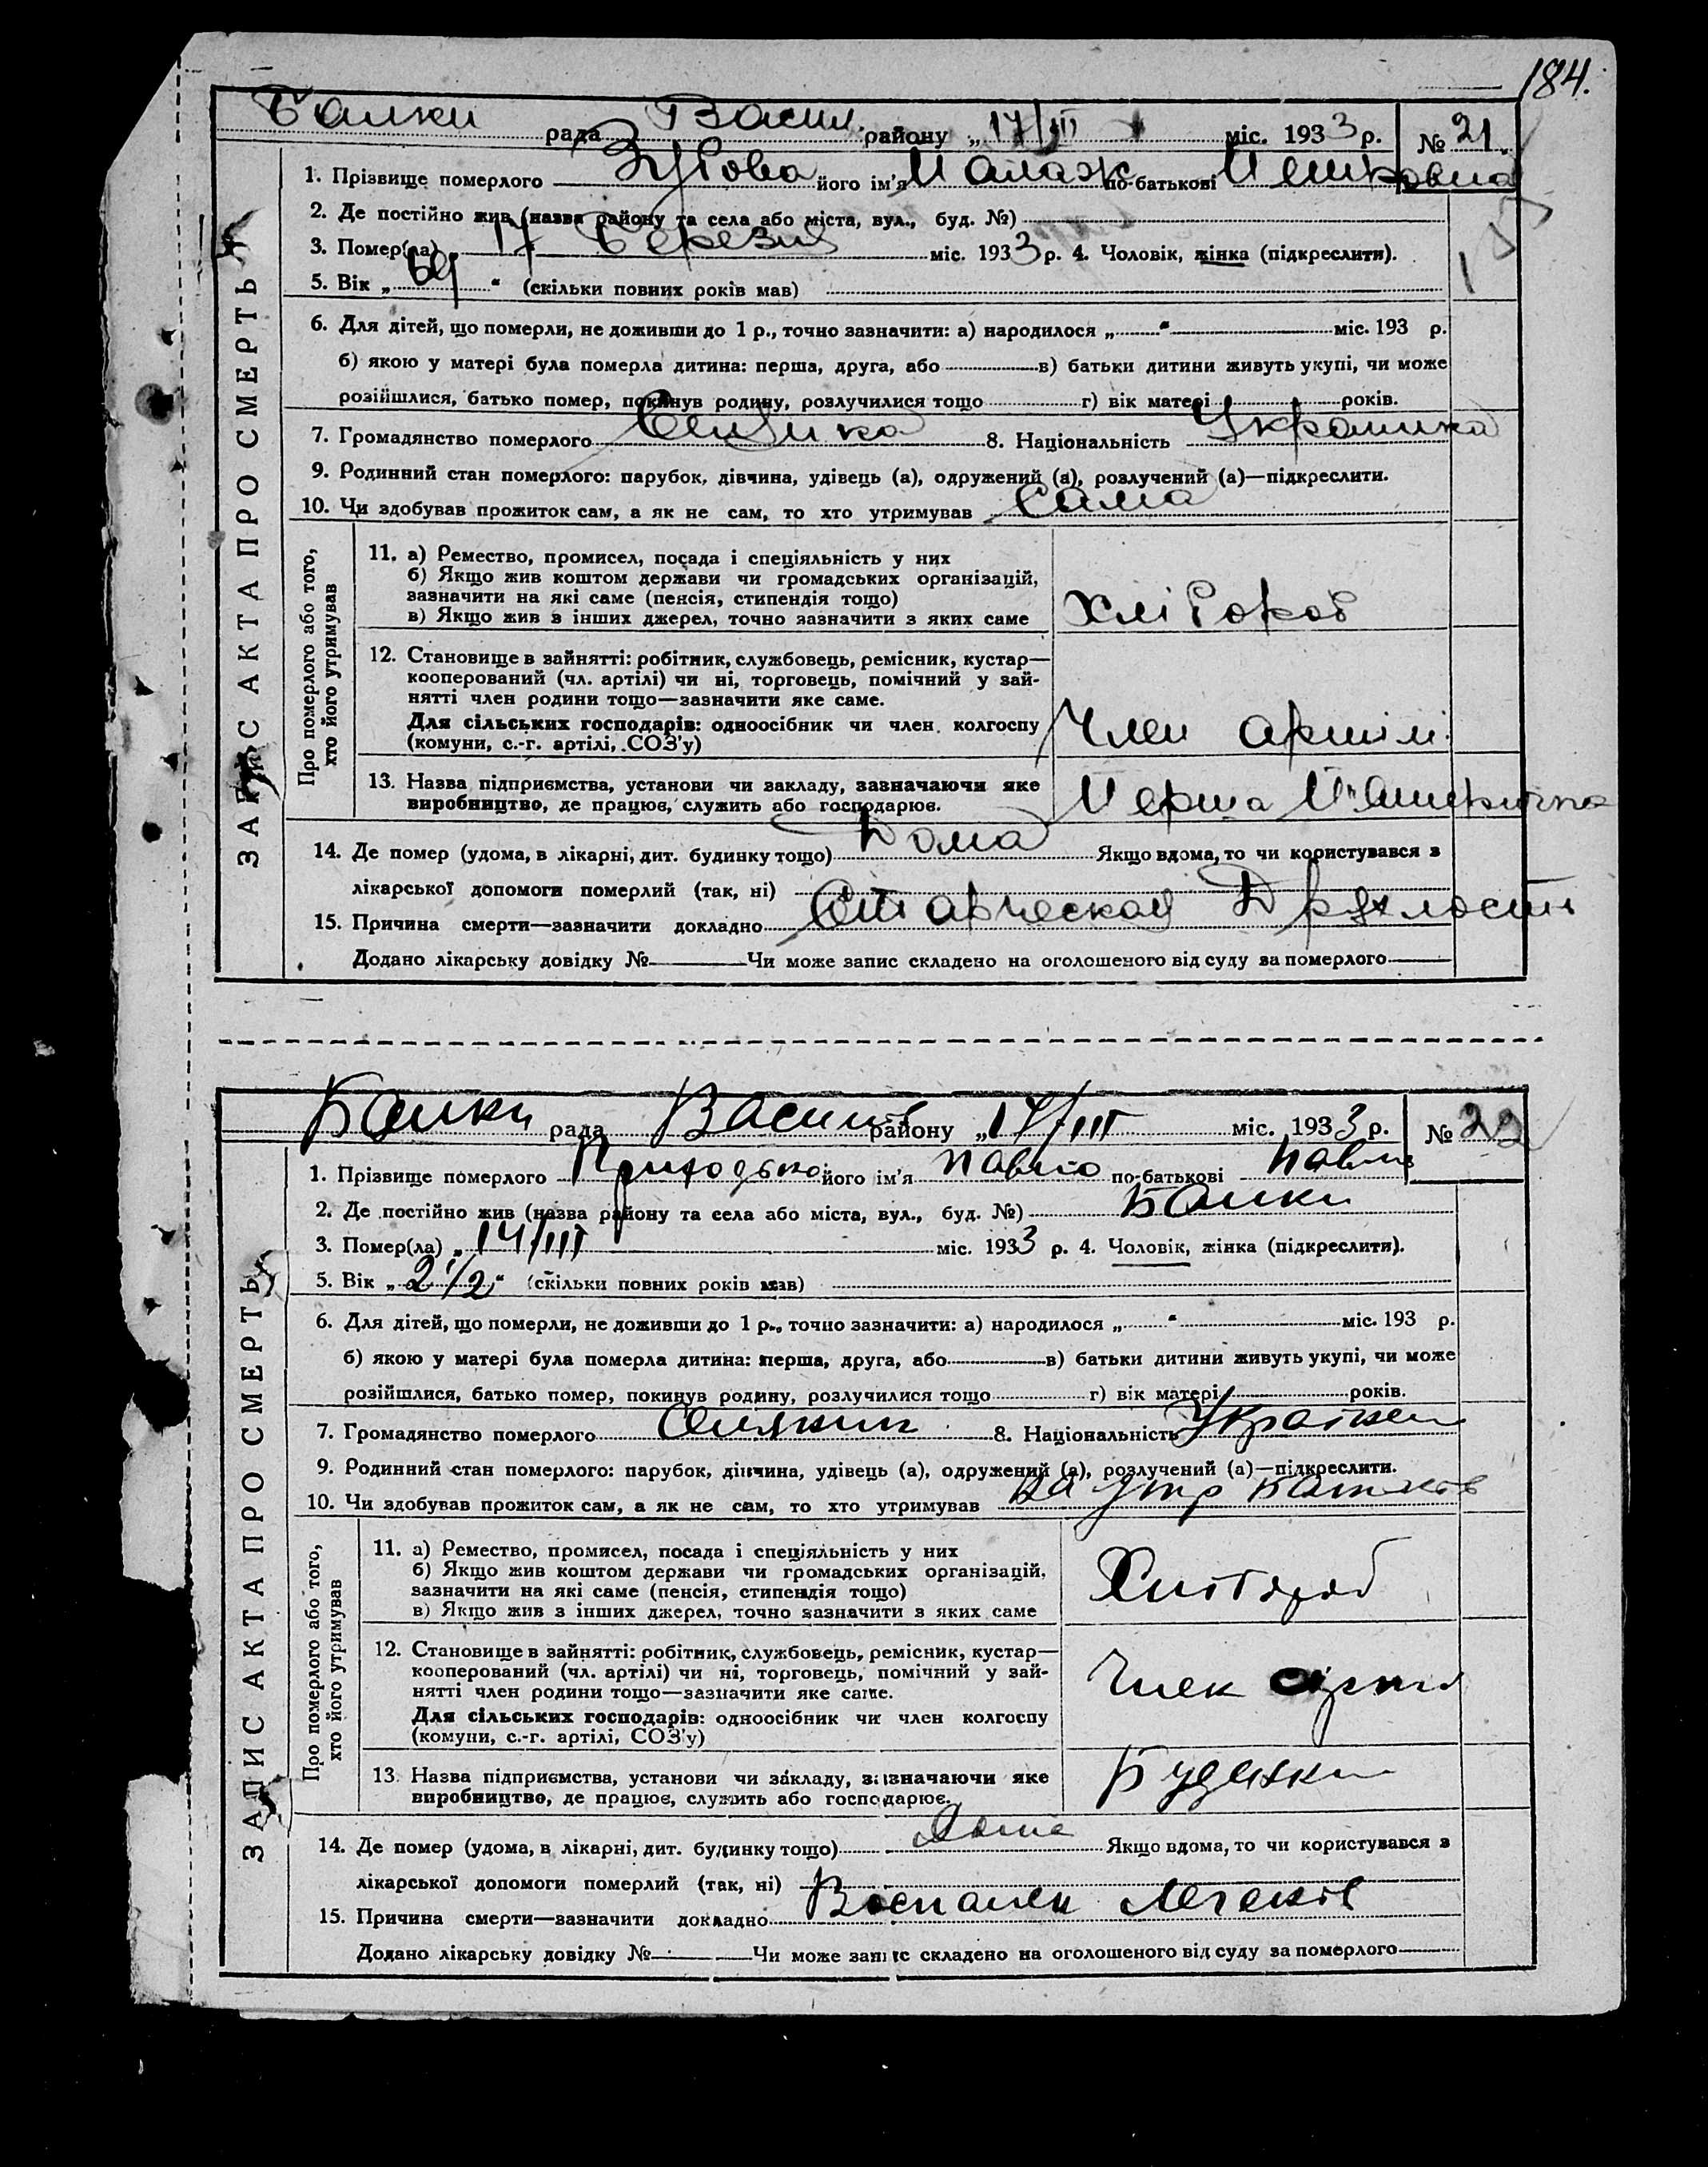 184.
Балки рада Васил. району „ 17/III міс. 1933 р. № 21
1. Прізвище померлого Зубова його ім'я Палаж по-батькові
2. Де постійно жив (назва району та села або міста, вул., буд. №)
3. Помер(ла) 17 Березня міс. 1933 р. 4. Чоловік, жінка (підкреслити).
5. Вік „ 69 “ (скільки повних років мав)
6. Для дітей, що померли, не доживши до 1 р., точно зазначити: а) народилося „ “ міс. 193 р.
б) якою у матері була померла дитина: перша, друга, або в) батьки дитини живуть укупі, чи може
розійшлися, батько помер, покинув родину, розлучилися тощо г) вік матері років.
7. Громадянство померлого 8. Національність Українка
9. Родинний стан померлого: парубок, дівчина, удівець (а), одружений (а), розлучений (а)—підкреслити.
10. Чи здобував прожиток сам, а як не сам, то хто утримував Сама
ЗАПИС АКТА ПРО СМЕРТЬ
Про померлого або того,
хто його утримував
11. а) Ремество, промисел, посада і спеціяльність у них
б) Якщо жив коштом держави чи громадських організацій,
зазначити на які саме (пенсія, стипендія тощо)
в) Якщо жив з інших джерел, точно зазначити з яких саме
Хлібороб
12. Становище в зайнятті: робітник, службовець, ремісник, кустар—
кооперований (чл. артілі) чи ні, торговець, помічний у зай-
нятті член родини тощо—зазначити яке саме.
Для сільських господарів: одноосібник чи член колгоспу
(комуни, с.-г. артілі, СОЗ'у)
Член артілі
13. Назва підприємства, установи чи закладу, зазначаючи яке
виробництво, де працює, служить або господарює.
Перша
14. Де помер (удома, в лікарні, дит. будинку тощо) Дома Якщо вдома, то чи користувався з
лікарської допомоги померлий (так, ні)
15. Причина смерти—зазначити докладно Старческая Дряхлость
Додано лікарську довідку № Чи може запис складено на оголошеного від суду за померлого
Балки рада Василів району „ 17/III міс. 1933 р. № 22
1. Прізвище померлого Приходько його ім'я Павло по-батькові Павлов
2. Де постійно жив (назва району та села або міста, вул., буд. №) Балки
3. Помер(ла) „ 14/III міс. 1933 р. 4. Чоловік, жінка (підкреслити).
5. Вік „ 2 1/2 “ (скільки повних років мав)
6. Для дітей, що померли, не доживши до 1 р., точно зазначити: а) народилося „ “ міс. 193 р.
б) якою у матері була померла дитина: перша, друга, або в) батьки дитини живуть укупі, чи може
розійшлися, батько помер, покинув родину, розлучилися тощо г) вік матері років.
7. Громадянство померлого 8. Національність Українец
9. Родинний стан померлого: парубок, дівчина, удівець (а), одружений (а), розлучений (а)—підкреслити.
10. Чи здобував прожиток сам, а як не сам, то хто утримував На утр батьків
ЗАПИС АКТА ПРО СМЕРТЬ
Про померлого або того,
хто його утримував
11. а) Ремество, промисел, посада і спеціяльність у них
б) Якщо жив коштом держави чи громадських організацій,
зазначити на які саме (пенсія, стипендія тощо)
в) Якщо жив з інших джерел, точно зазначити з яких саме
Хлібороб
12. Становище в зайнятті: робітник, службовець, ремісник, кустар—
кооперований (чл. артілі) чи ні, торговець, помічний у зай-
нятті член родини тощо—зазначити яке саме.
Для сільських господарів: одноосібник чи член колгоспу
(комуни, с.-г. артілі, СОЗ'у)
Член артілі
13. Назва підприємства, установи чи закладу, зазначаючи яке
виробництво, де працює, служить або господарює.
14. Де помер (удома, в лікарні, дит. будинку тощо) Дома Якщо вдома, то чи користувався з
лікарської допомоги померлий (так, ні)
15. Причина смерти—зазначити докладно Воспален легеків
Додано лікарську довідку № Чи може запис складено на оголошеного від суду за померлого